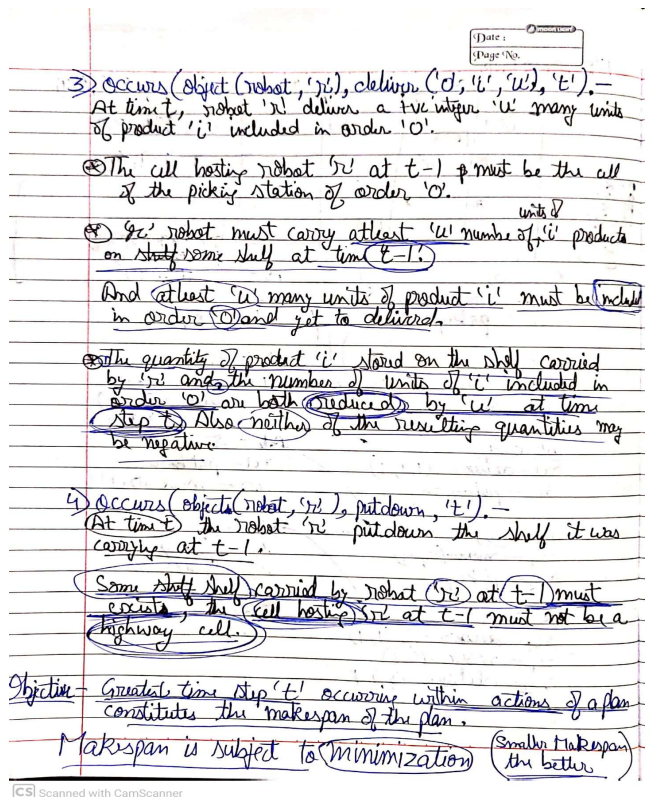 Date :
Page No.
3) Occurs (object (robot, 'r'), deliver ('o', 'i', 'u'), 't'). —
At time t, robot 'r' deliver a +ve integer 'u' many units
of product 'i' included in order 'O'.
The cell hosting robot 'r' at t-1 must be the cell
of the picking station of order 'O'.
units of
'r' robot must carry atleast 'u' numbe of 'i' products
on some shelf at time t-1.
And atleast 'u' many units of product 'i' must be included
in order 'O' and yet to deliverd.
The quantity of product 'i' stored on the shelf carried
by 'r' and the number of units of 'i' included in
order 'O' are both reduced by 'u' at time
step t. Also neither of the resulting quantities may
be negative.
4) Occurs (objects (robot, 'r'), putdown, 't'). —
At time t the robot 'r' putdown the shelf it was
carrying at t-1.
Some shelf carried by robot 'r' at t-1 must
exists, the cell hosting 'r' at t-1 must not be a
highway cell.
Objective - Greatest time step 't' occurring within actions of a plan
constitutes the makespan of the plan.
Makespan is subject to minimization (Smaller Makespan
the better)
CS Scanned with CamScanner